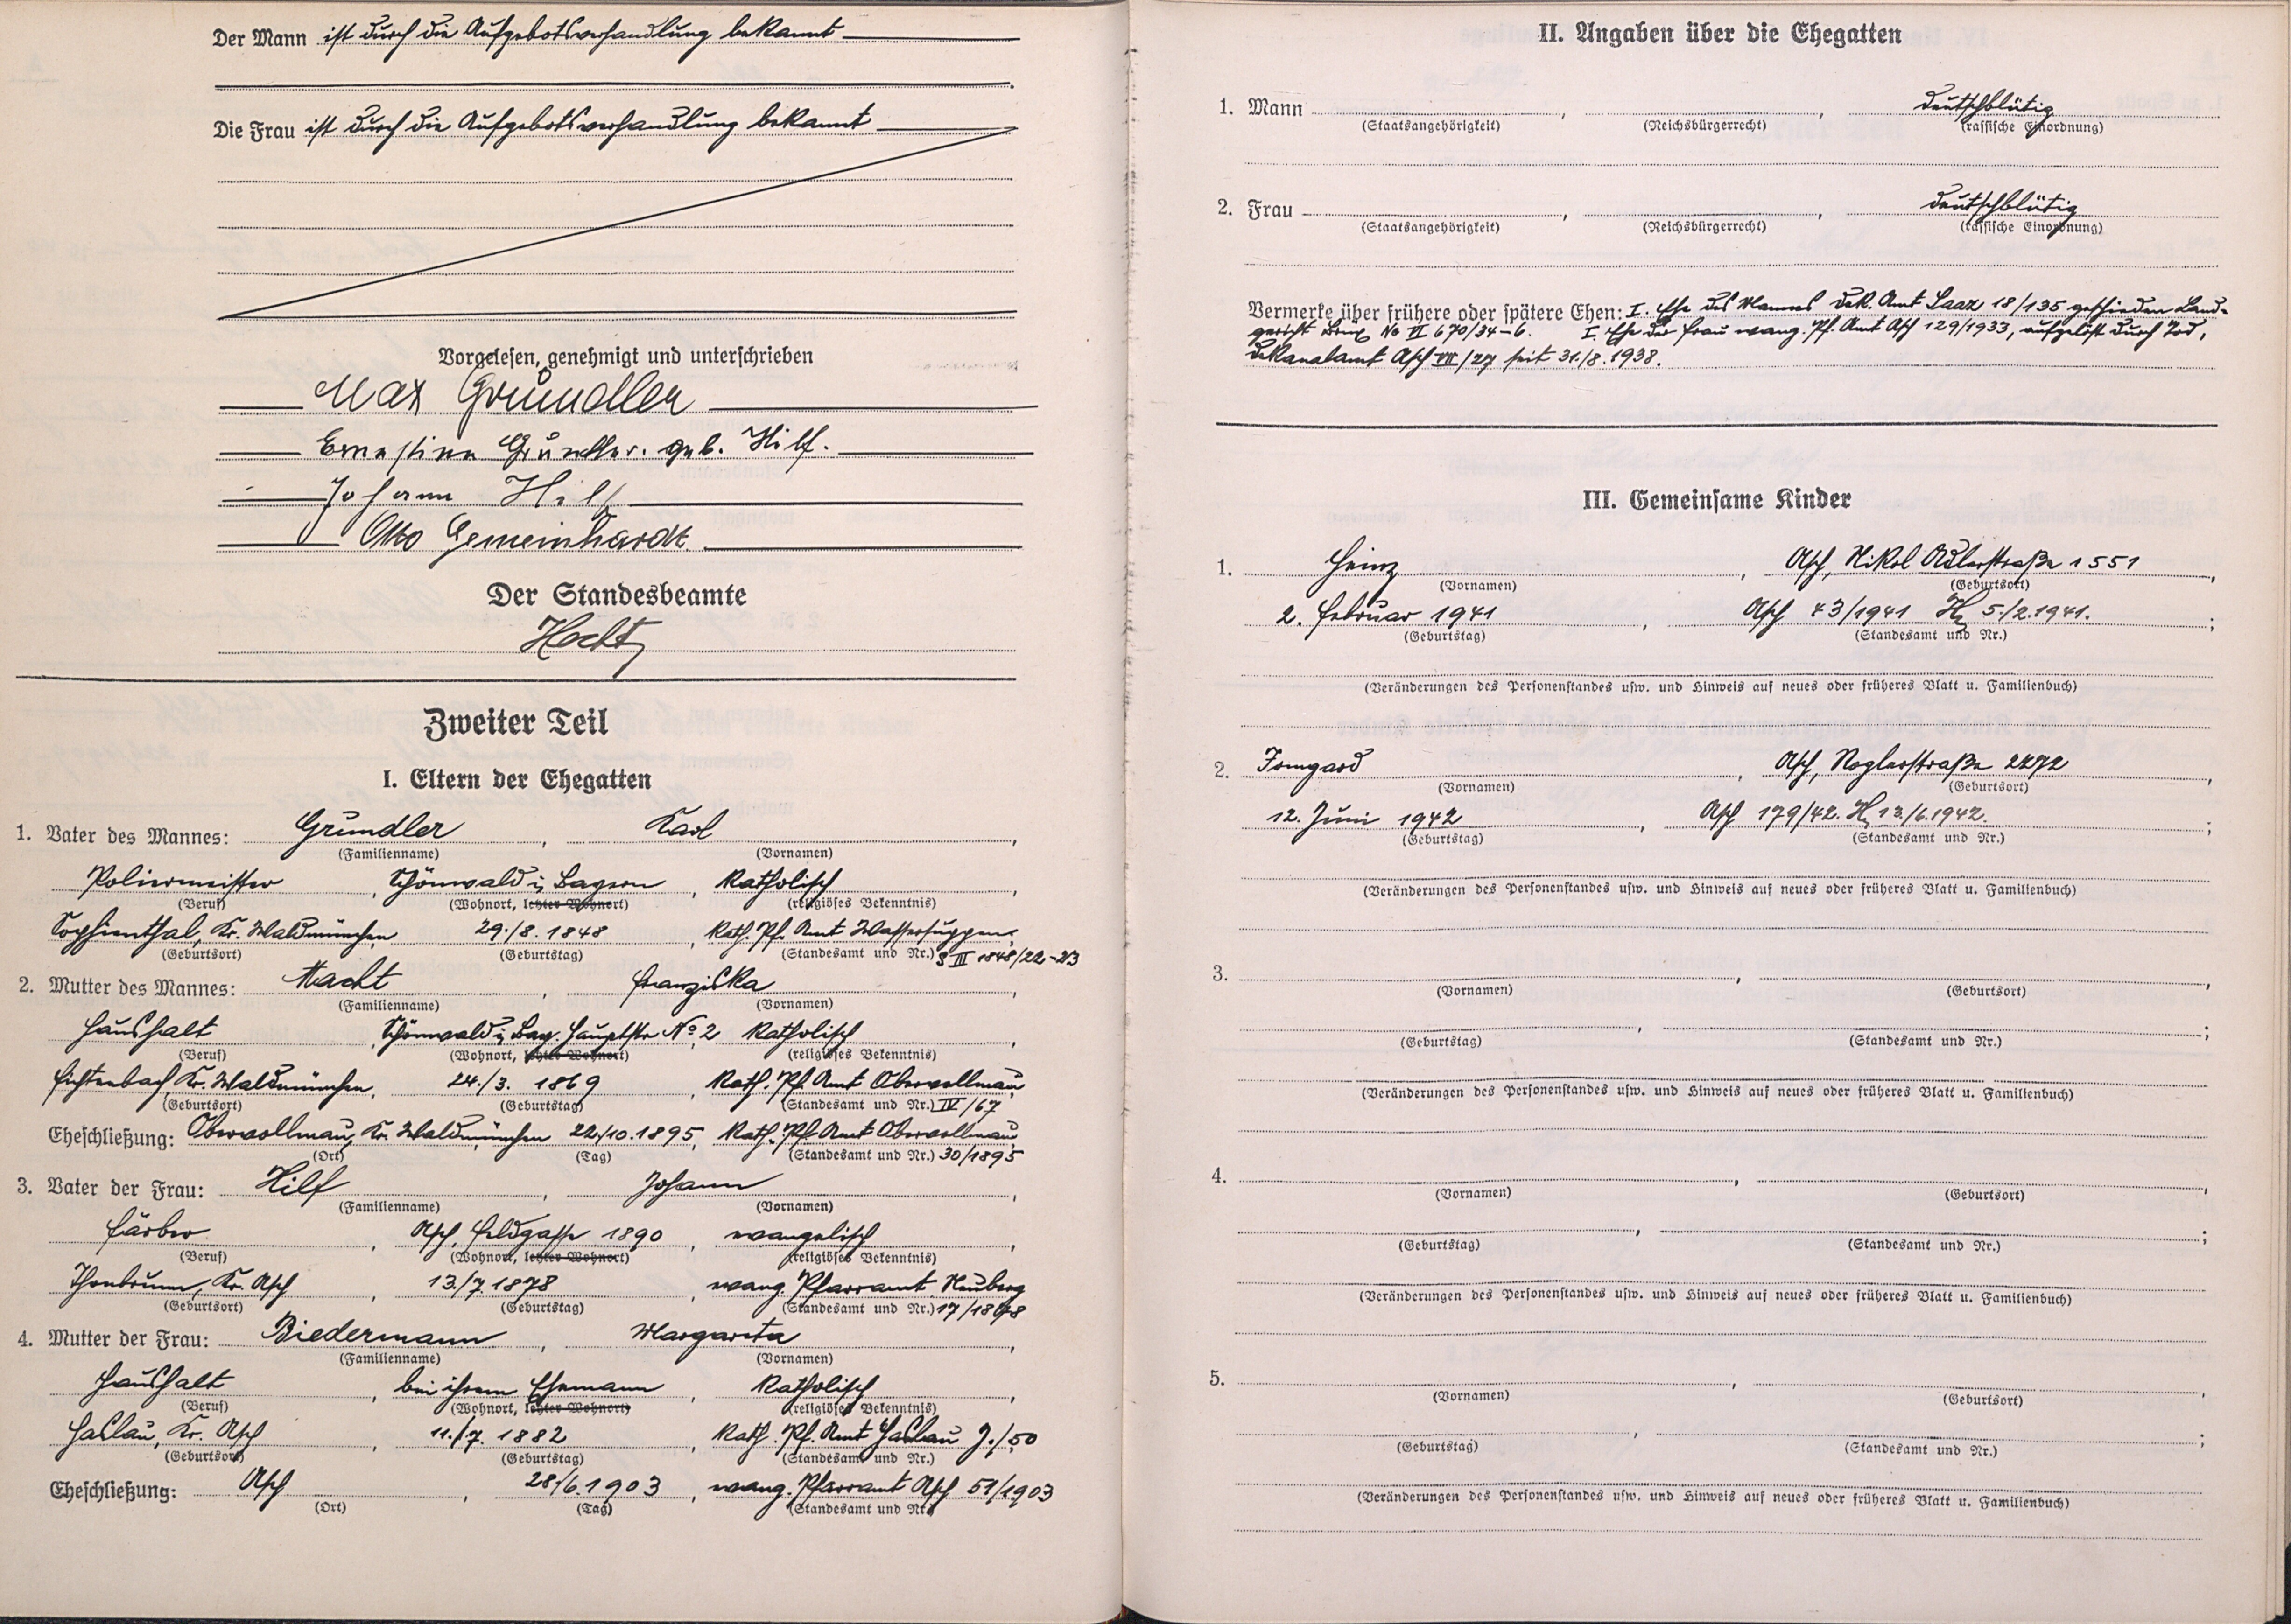 Der Mann ist durch die Aufgebotsverhandlung bekannt
Die Frau ist durch die Aufgebotsverhandlung bekannt
Vorgelesen, genehmigt und unterschrieben
Max Gründler
Ernestine Gründler. geb. Hilf.
Johann Hilf
Otto Gemeinhardt
Der Standesbeamte
Hecht
Zweiter Teil
I. Eltern der Ehegatten
1. Vater des Mannes: Gründler, Karl,
(Familienname) (Vornamen)
Poliermeister, Schönwald i. Bayern, katholisch,
(Beruf) (Wohnort, letzter Wohnort) (religiöses Bekenntnis)
Sophienthal, Kr. Waldmünchen, 29./8. 1848, kath. Pf. Amt
(Geburtsort) (Geburtstag) (Standesamt und Nr.) S III 1848/22-23
2. Mutter des Mannes: Macht, Franziska,
(Familienname) (Vornamen)
Haushalt, Schönwald i. Bay. Hauptstr No. 2 katholisch,
(Beruf) (Wohnort, letzter Wohnort) (religiöses Bekenntnis)
Fichtenbach, Kr. Waldmünchen, 24./3. 1869, kath. Pf. Amt Obervollmau,
(Geburtsort) (Geburtstag) (Standesamt und Nr.) IV/67
Eheschließung: Obervollmau, Kr. Waldmünchen 22./10. 1895, kath. Pf. Amt Obervollmau,
(Ort) (Tag) (Standesamt und Nr.) 30/1895
3. Vater der Frau: Hilf, Johann,
(Familienname) (Vornamen)
Färber, Asch, Feldgasse 1890, evangelisch,
(Beruf) (Wohnort, letzter Wohnort) (religiöses Bekenntnis)
Thonbrunn, Kr. Asch, 13./7. 1878, evang. Pfarramt Neuberg
(Geburtsort) (Geburtstag) (Standesamt und Nr.) 17/1878
4. Mutter der Frau: Biedermann, Margareta,
(Familienname) (Vornamen)
Haushalt, bei ihrem Ehemann, katholisch,
(Beruf) (Wohnort, letzter Wohnort) (religiöses Bekenntnis)
Haslau, Kr. Asch, 11./7. 1882, kath. Pf. Amt Haslau J./50
(Geburtsort) (Geburtstag) (Standesamt und Nr.)
Eheschließung: Asch, 28./6. 1903, evang. Pfarramt Asch 51/1903
(Ort) (Tag) (Standesamt und Nr.)
II. Angaben über die Ehegatten
1. Mann , , deutschblütig
(Staatsangehörigkeit) (Reichsbürgerrecht) (rassische Einordnung)
2. Frau , , deutschblütig
(Staatsangehörigkeit) (Reichsbürgerrecht) (rassische Einordnung)
Vermerke über frühere oder spätere Ehen: I. Ehe des Mannes Dek. Amt Saaz 18/135 geschieden Land-
gericht Brüx No VI 670/34-6. I. Ehe der Frau evang. Pf. Amt Asch 129/1933, aufgelöst durch Tod,
Dekanalamt Asch VII/27 seit 31./8. 1938.
III. Gemeinsame Kinder
1. Heinz, Asch, Nikol Adlerstraße 1551,
(Vornamen) (Geburtsort)
2. Februar 1941, Asch 43/1941 H 5./2. 1941.;
(Geburtstag) (Standesamt und Nr.)
(Veränderungen des Personenstandes usw. und Hinweis auf neues oder früheres Blatt u. Familienbuch)
2. Irmgard, Asch, Roglerstraße 2272,
(Vornamen) (Geburtsort)
12. Juni 1942, Asch 179/42. H 13./6. 1942.;
(Geburtstag) (Standesamt und Nr.)
(Veränderungen des Personenstandes usw. und Hinweis auf neues oder früheres Blatt u. Familienbuch)
3. , ,
(Vornamen) (Geburtsort)
, ;
(Geburtstag) (Standesamt und Nr.)
(Veränderungen des Personenstandes usw. und Hinweis auf neues oder früheres Blatt u. Familienbuch)
4. , ,
(Vornamen) (Geburtsort)
, ;
(Geburtstag) (Standesamt und Nr.)
(Veränderungen des Personenstandes usw. und Hinweis auf neues oder früheres Blatt u. Familienbuch)
5. , ,
(Vornamen) (Geburtsort)
, ;
(Geburtstag) (Standesamt und Nr.)
(Veränderungen des Personenstandes usw. und Hinweis auf neues oder früheres Blatt u. Familienbuch)